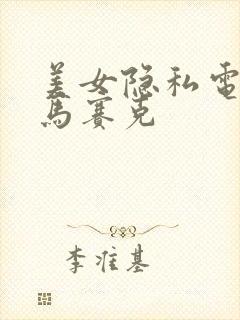 美女隐私電
馬赛克
李准基